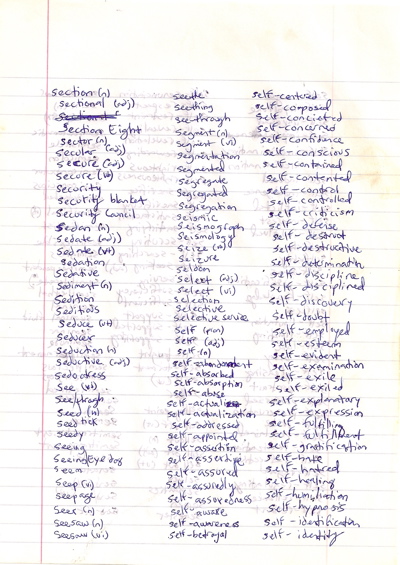 section (n)
sectional (adj)
Section Eight
sector (n)
secular (adj)
secure (adj)
secure (vt)
security
security blanket
Security Council
sedan (n)
sedate (adj)
sedate (vt)
sedation
sedative
sediment (n)
sedition
seditious
seduce (vt)
seducer
seduction (n)
seductive (adj)
see (vt)
seed (n)
seed
seedy
seeing
Seeing Eye dog
seem
seep (vi)
seepage
seer (n)
seesaw (n)
seesaw (vi)
seethe
seething
seethrough
segment (n)
segment (vi)
segmentation
segmented
segregate
segregated
segregation
seismic
seismograph
seismology
seize
seizure
seldom
select (adj)
select (vi)
selection
selective
selective service
self (pron)
self (adj)
self (n)
self-absorbed
self-absorption
self-abuse
self-actualization
self-addressed
self-appointed
self-assertion
self-assertive
self-assured
self-assuredly
self-assuredness
self-aware
self-awareness
self-betrayal
self-centered
self-composed
self-concieted
self-concerned
self-confidence
self-conscious
self-contained
self-contented
self-control
self-controlled
self-criticism
self-defense
self-destruct
self-destructive
self-determination
self-discipline
self-disciplined
self-discovery
self-doubt
self-employed
self-esteem
self-evident
self-examination
self-exile
self-exiled
self-explanatory
self-expression
self-fulfilling
self-fulfillment
self-gratification
self-hate
self-hatred
self-healing
self-humiliation
self-hypnosis
self-identification
self-identity